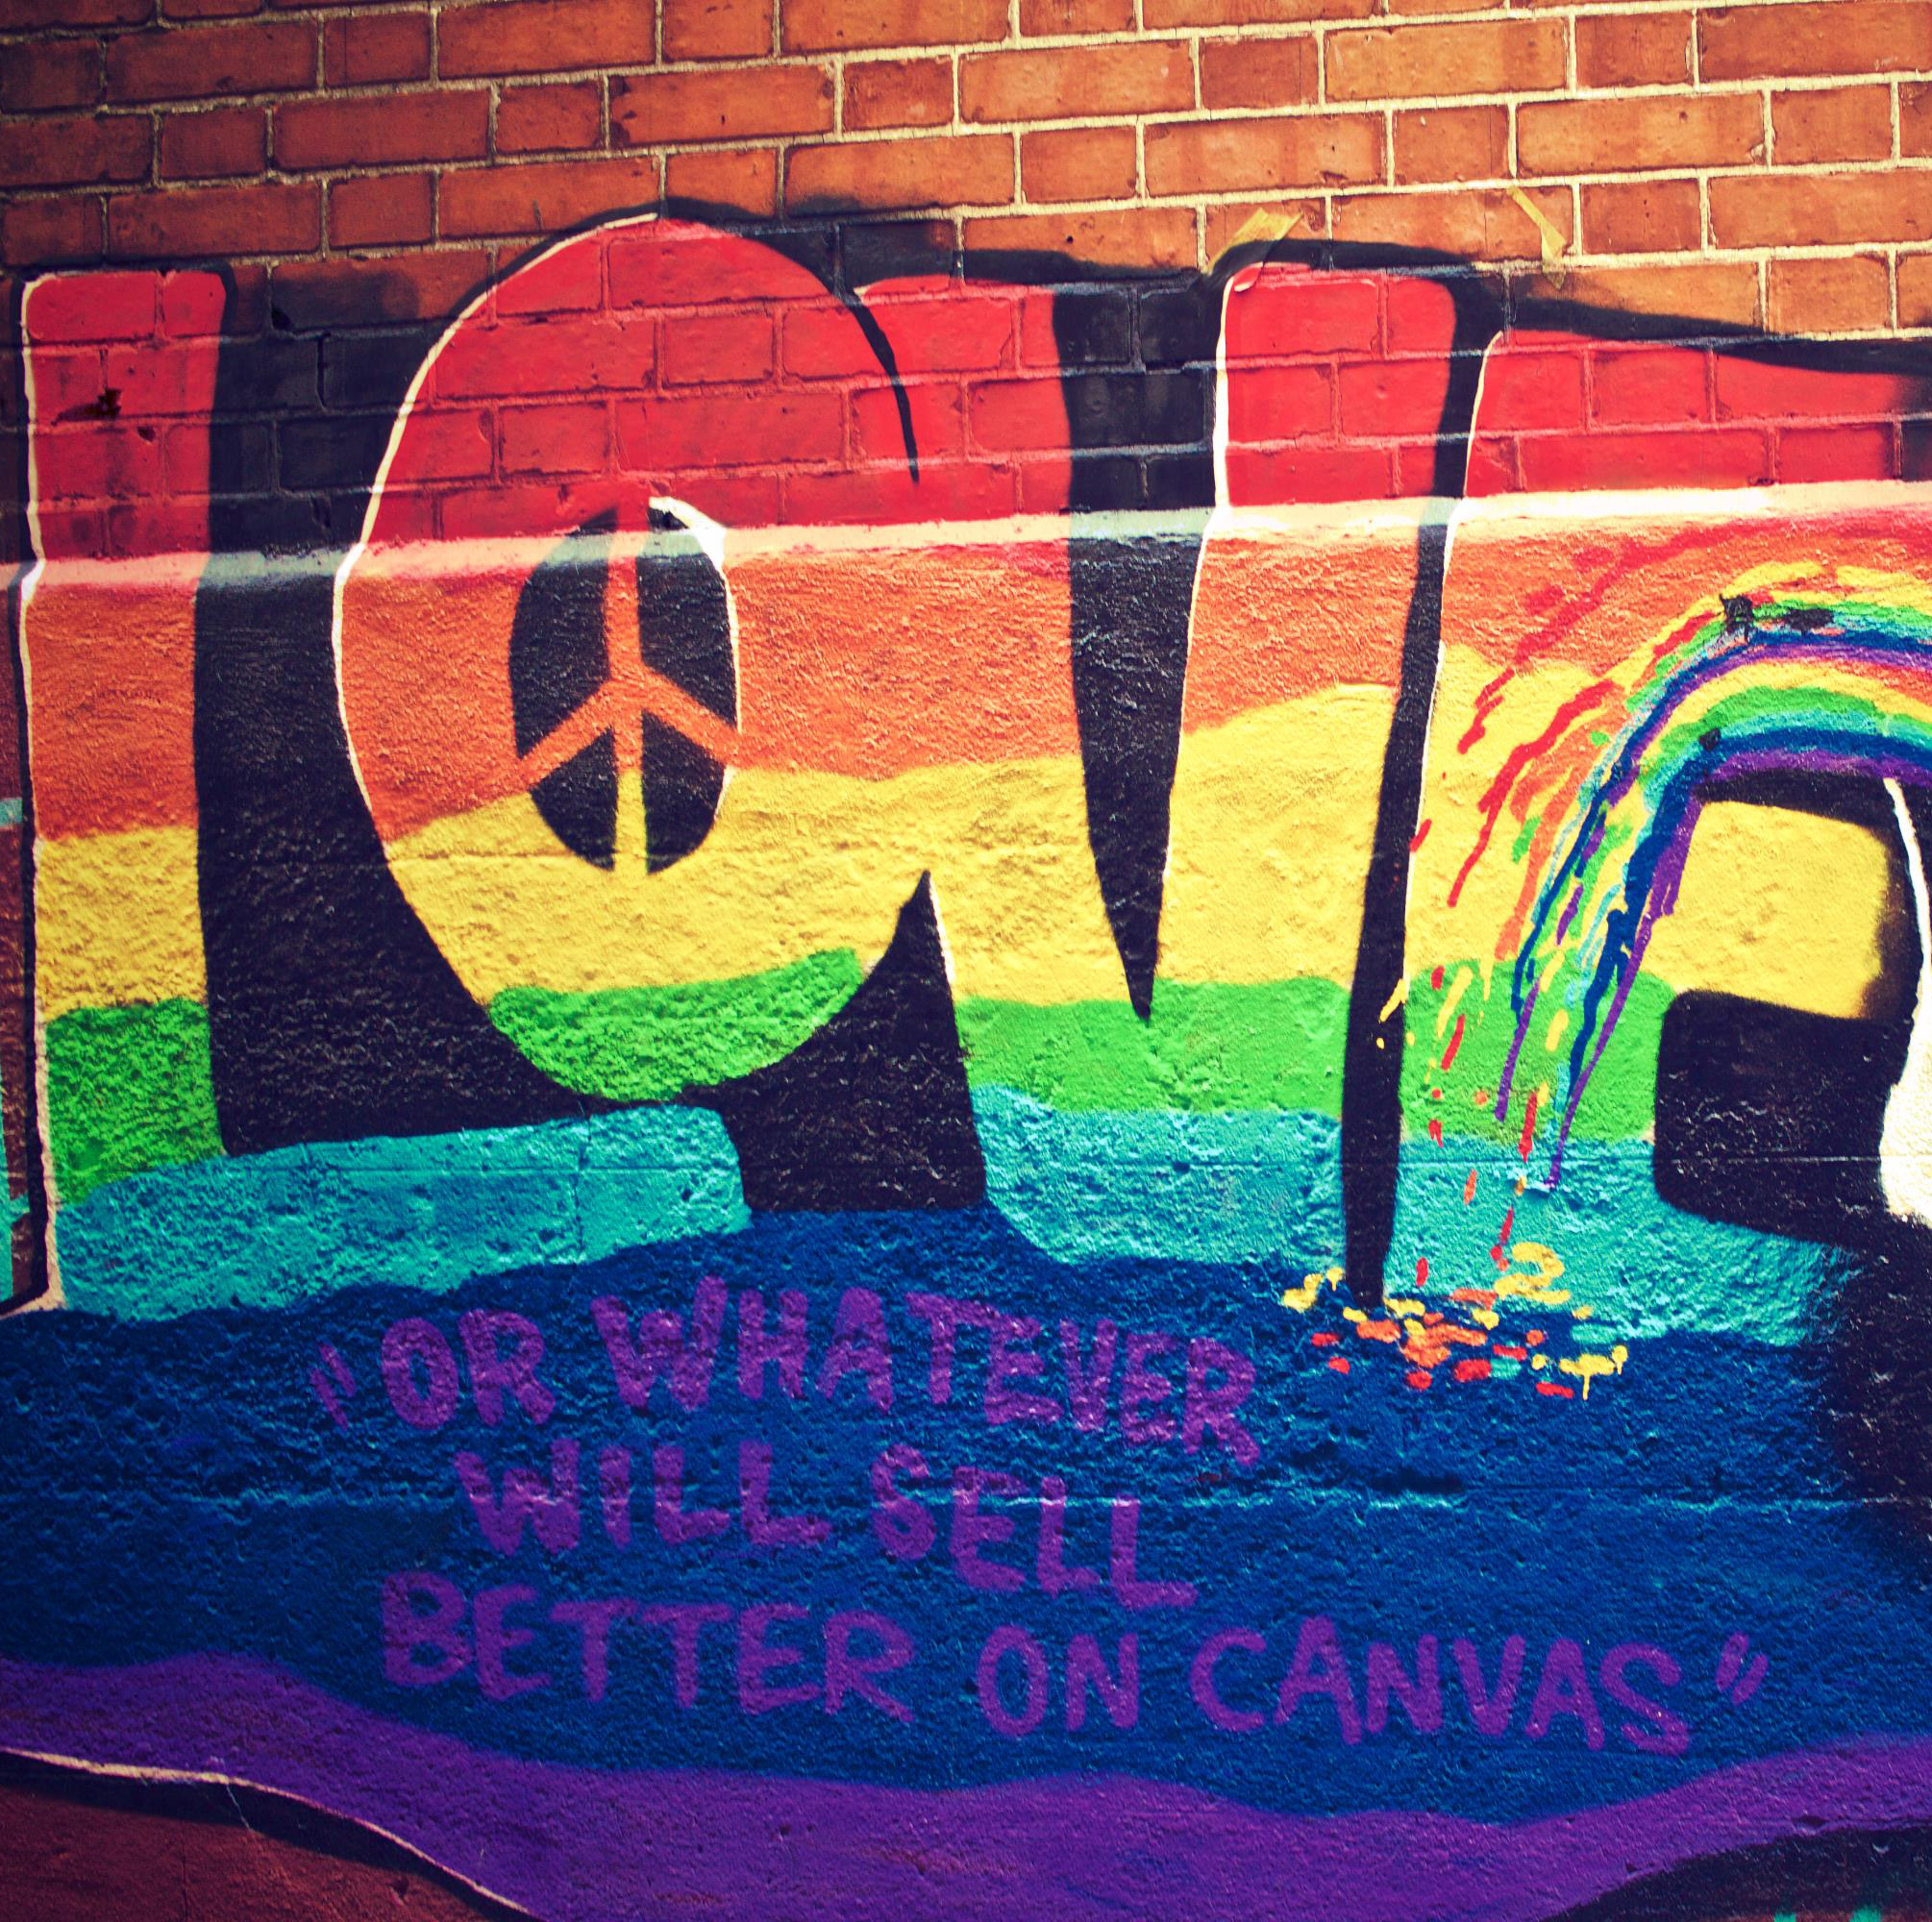 LOVE
"OR WHATEVER
WILL SELL
BETTER ON CANVAS"